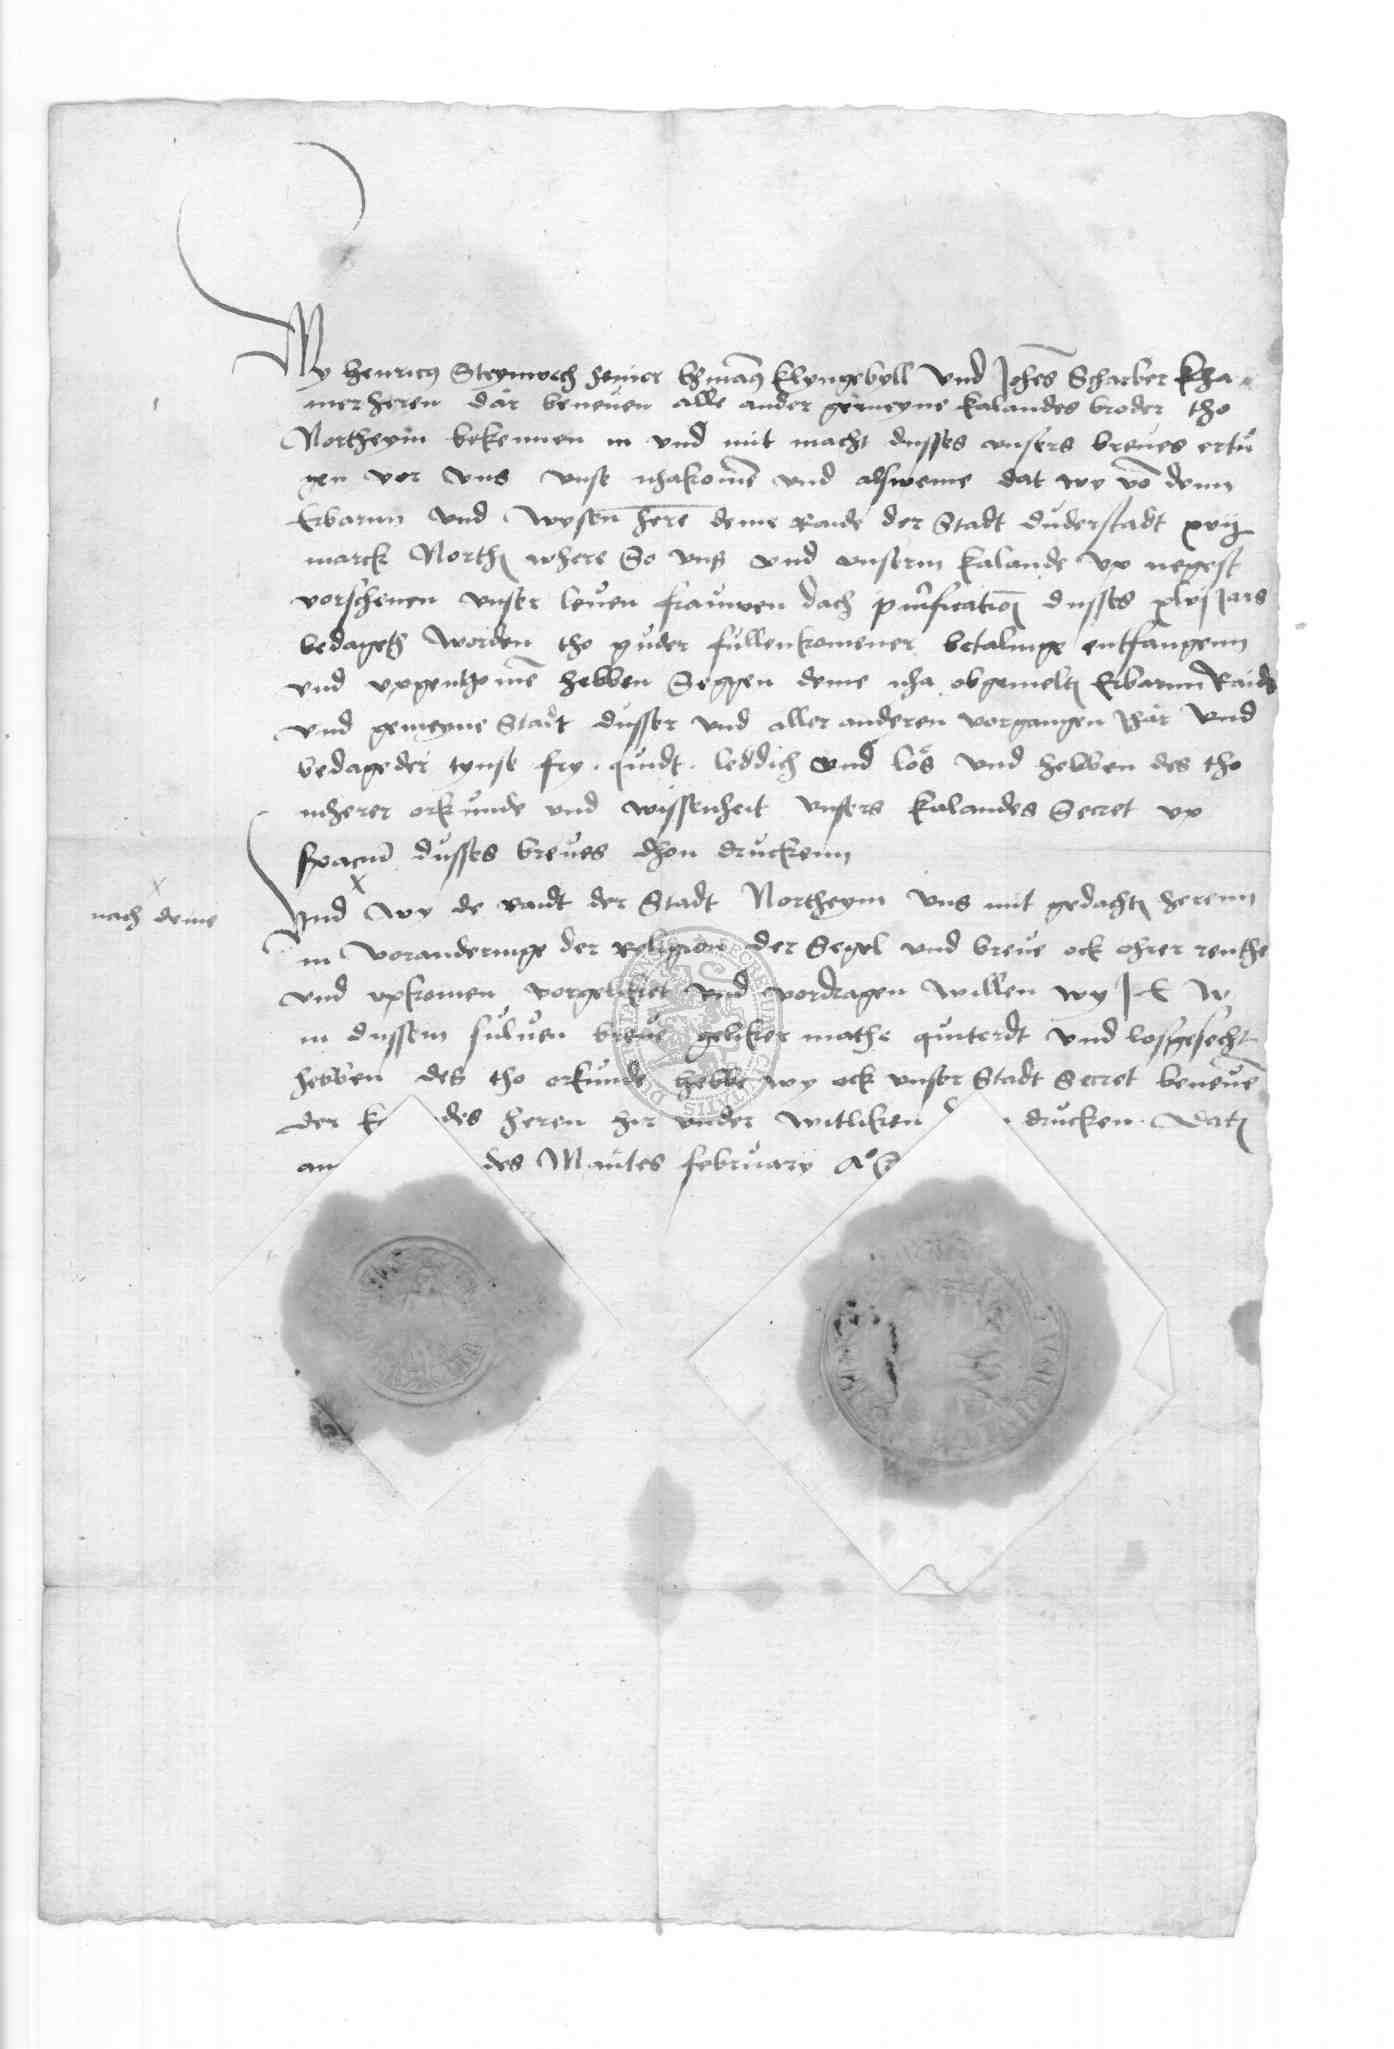 Wy Henricus Steynwech senior Hermans Klyngebyll Und Johes Scharber Kha
merheren dar beneuen alle ander gemeyne kalandes broder tho
Northeym bekennen in vnd mit macht dusses vnsers breues ertu
gen vor vns vnse nhakome vnd alsweme dat wy vo denn
Erbarnn vnd wysen here deme Raide der Stadt duderstadt xvij
marck North where So vns vnd vnserm kalande vp negest
vorschenen vnser leuen frauwen dach purificatio dusses xlvj Jars
bedaget worden tho guder fullenkomener betalinge entfangenn
vnd vpgenhome hebben Seggen deme nha obgemelt Erbarnn Raide
vnd gemeyne Stadt dusser vnd aller anderen vorgangen Jar vnd
bedageder tynse fry . quidt . leddich vnd los vnd hebben des tho
mherer orkunde vnd wissenheit vnsers kalandes Secret vp
spacium dusses breues dhon druckenn
Vnd x wy de raidt der Stadt Northeym vns mit gedacht herenn
nach deme
in voranderinge der Religion der Segel vnd breue ock ohrer renthe
vnd vpkomen vorgeliket vnd vordragen willen wy J E W
in dussem suluen breue geliker mathe quiterdt vnd losgesecht
hebben des tho orkunde hebbe wy ock vnser Stadt Secret beneue
der des heren hir vnder witliken drucken . Dat
am des Mantes february Ao